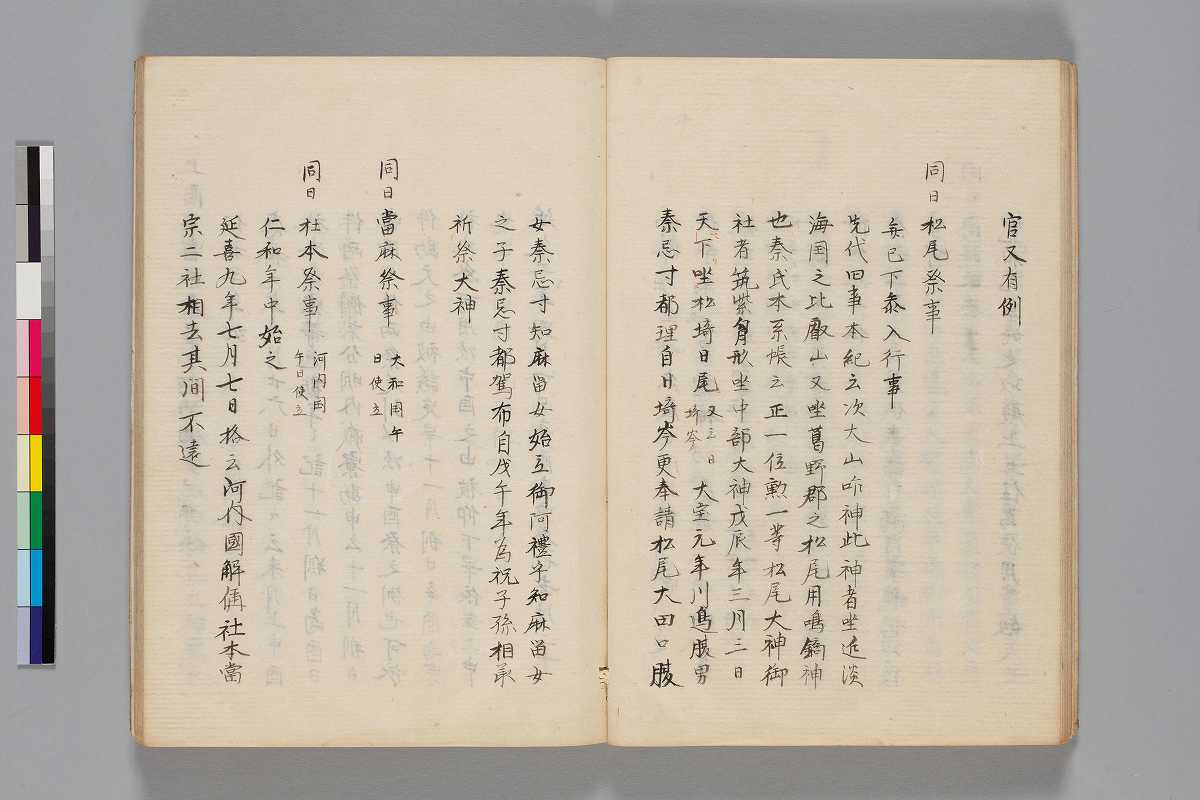 官又有例
同日松尾祭事
弁已下参入行事
先代旧事本紀云次大山咋神此神者坐近淡
海国之比叡山又坐葛野郡之松尾用鳴鏑神
也秦氏本系帳云正一位勲一等松尾大神御
社者筑紫胸形坐中部大神戊辰年三月三日
天下坐松埼日尾又云日埼岑大宝元年川邊腹男
秦忌寸都理自日埼岑更奉請松尾大田口腹
女秦忌寸知麻留女始立御阿禮乎知麻留女
之子秦忌寸都駕布自戊午年為祝子孫相承
祈祭大神
同日當麻祭事大和国午日使立
同日杜本祭事河内国午日使立
仁和年中始之
延喜九年七月七日格云河内國解偁社本當
宗二社相去其間不遠